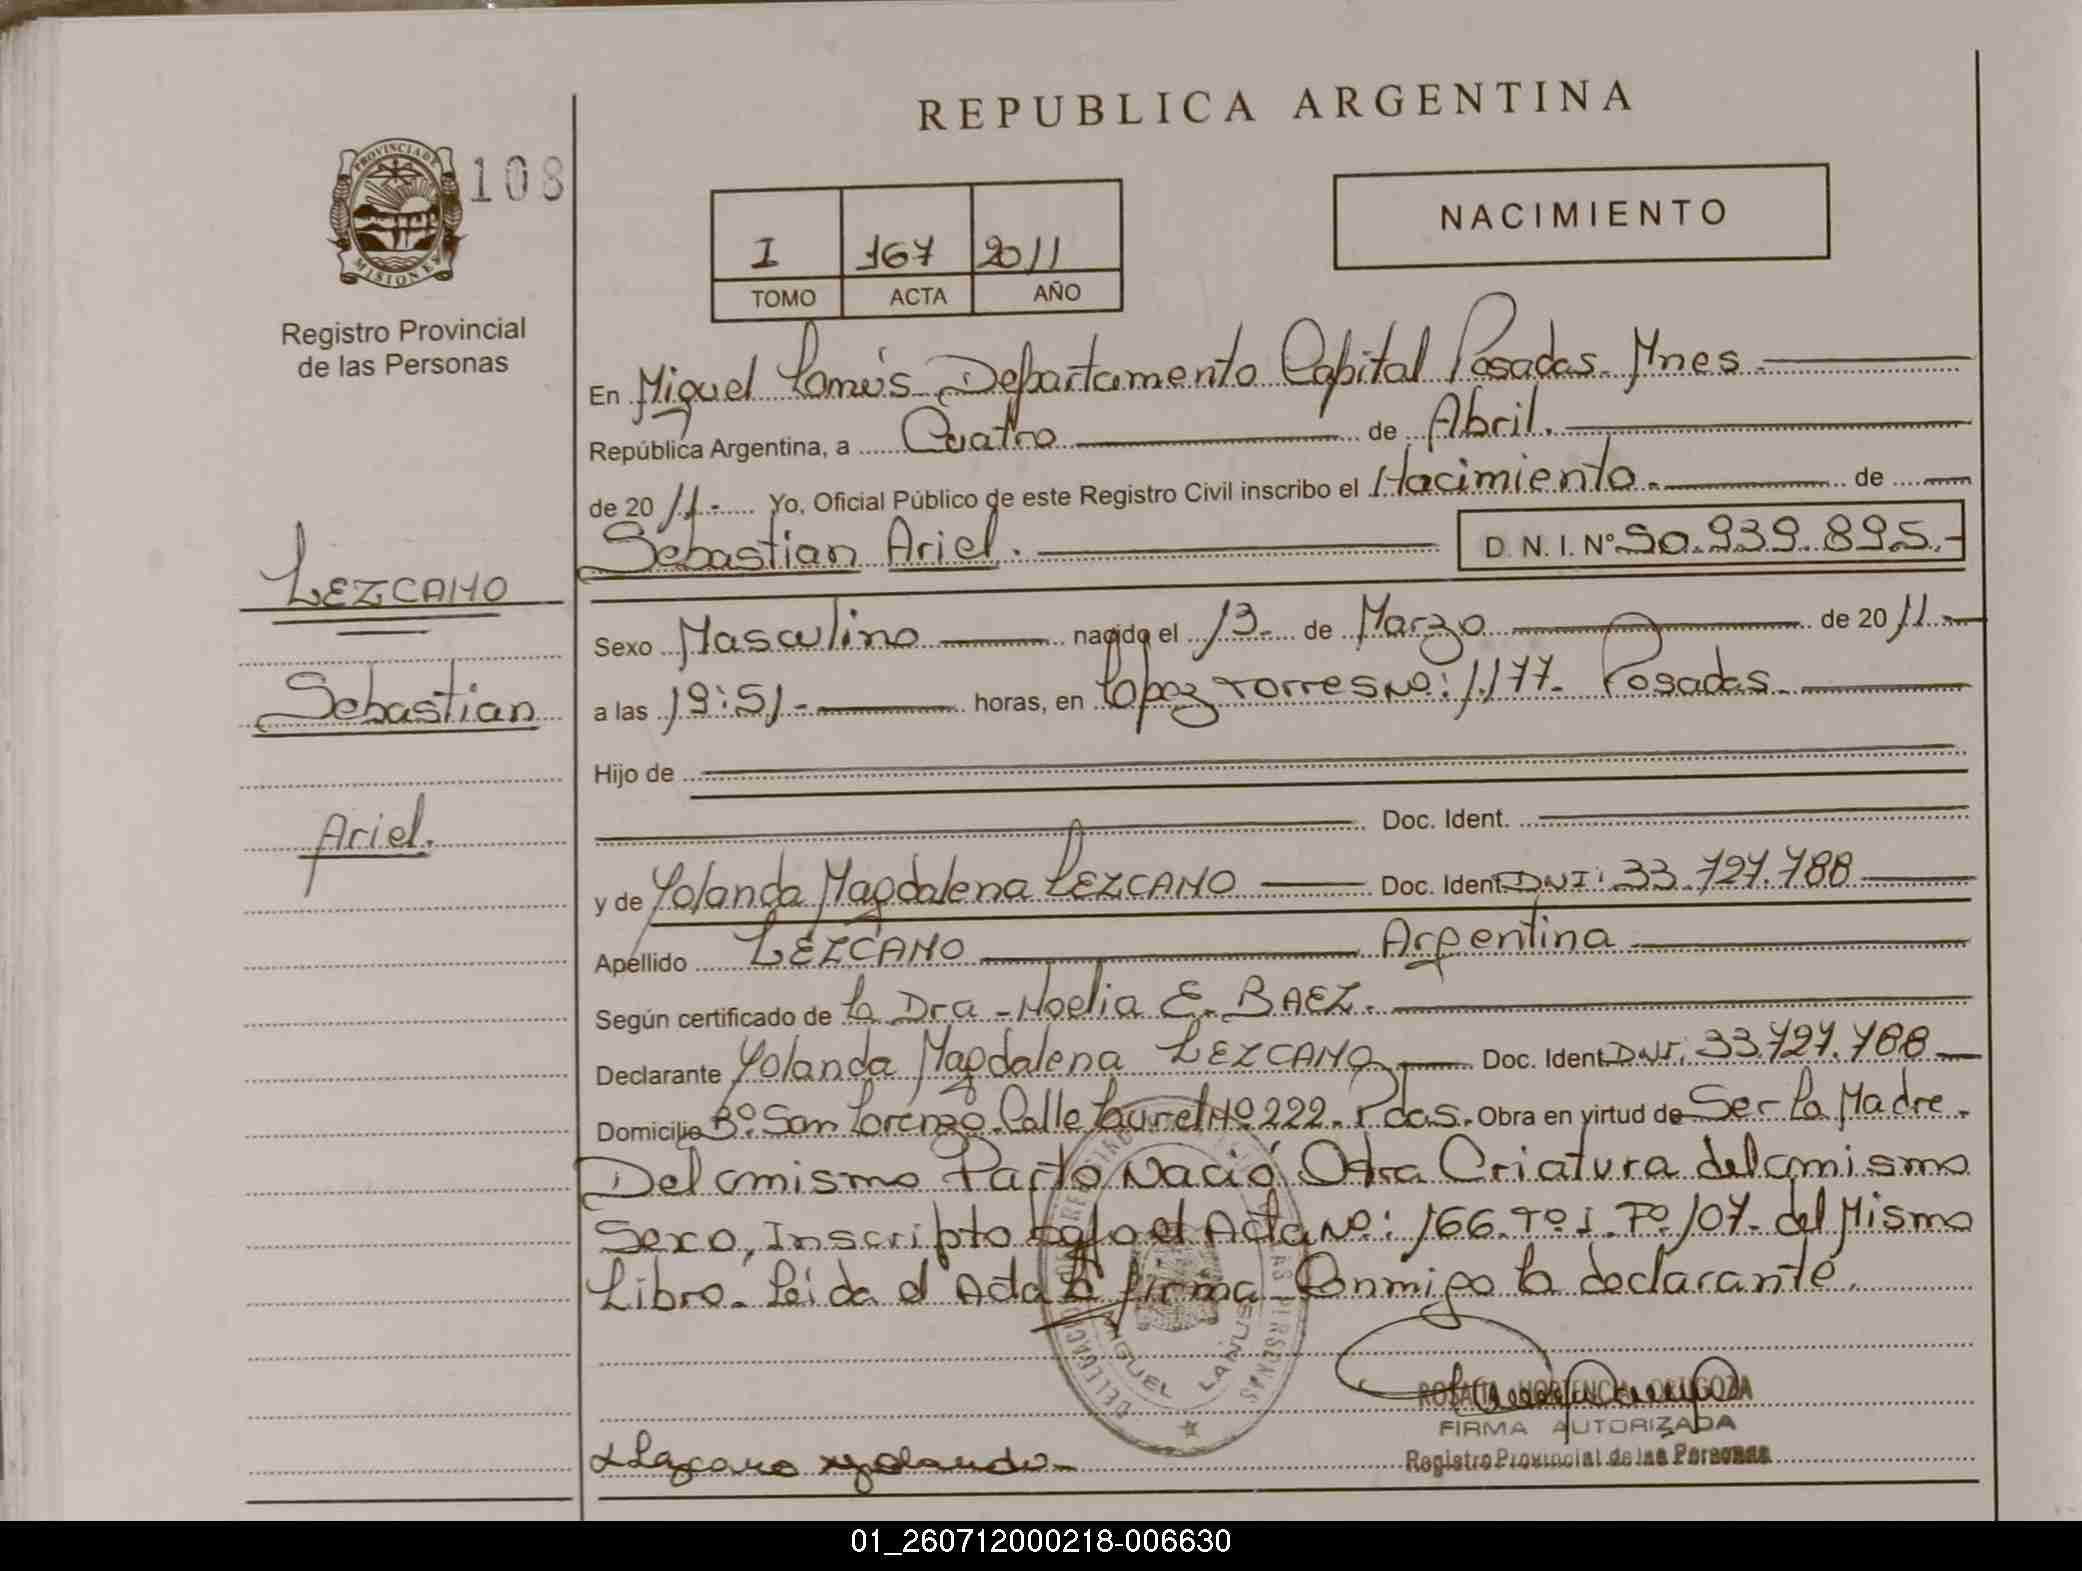 REPUBLICA ARGENTINA
PROVINCIA DE
MISIONES
108
Registro Provincial
de las Personas
I 167 2011
TOMO ACTA AÑO
NACIMIENTO
En Miguel Lanús Departamento Capital Posadas Mnes
República Argentina, a Cuatro de Abril.
de 20 11.- Yo, Oficial Público de este Registro Civil inscribo el Nacimiento. de
Sebastian Ariel. D. N. I. Nº 50.939.895.-
LEZCANO
Sebastian
Ariel.
Sexo Masculino nacido el 13. de Marzo de 20 11.-
a las 19:51- horas, en Lopez Torres Nº: 1.177. Posadas.
Hijo de
Doc. Ident.
y de Yolanda Magdalena LEZCANO Doc. Ident. DNI: 33.727.788
Apellido LEZCANO Argentina
Según certificado de La Dra - Noelia E. BAEZ.
Declarante Yolanda Magdalena LEZCANO Doc. Ident. DNI. 33.727.788
Domicilio Bº. San Lorenzo. Calle Laurel Nº 222. Pdas. Obra en virtud de Ser La Madre.
Del mismo Parto Nació Otra Criatura del mismo
Sexo, Inscripto bajo el Acta Nº: 166. Tº. I. Fº. 107. del Mismo
Libro. Leída el Acta la firma Conmigo la declarante.
MIGUEL LANUS
FIRMA AUTORIZADA
Registro Provincial de las Personas
Lezcano Yolanda
01_260712000218-006630